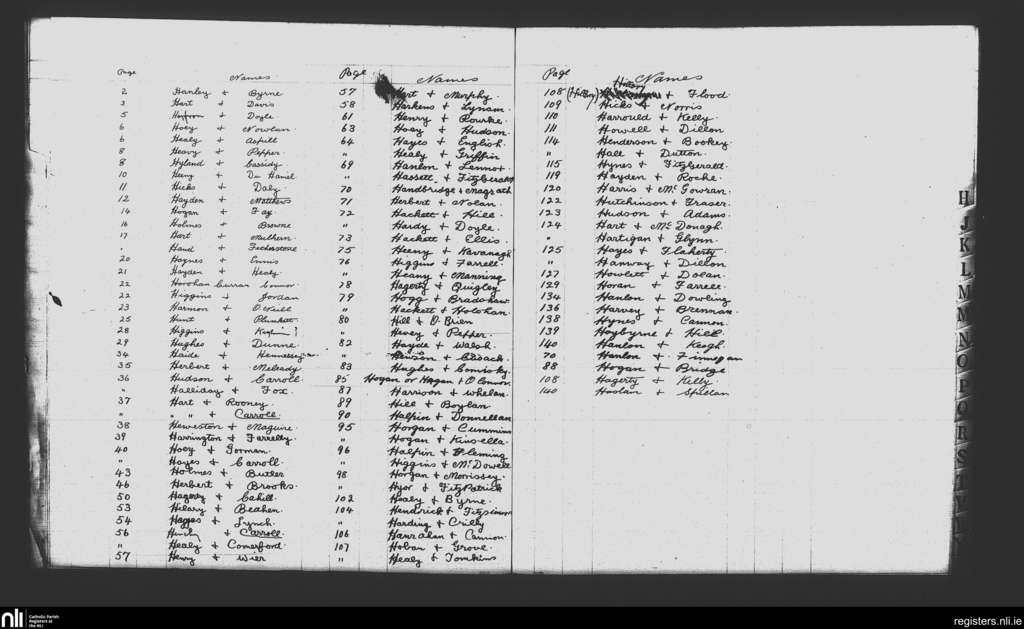 Page Names
2 Hanley + Byrne
3 Hart + Davis
5 + Doyle
6 Hoey + Nowlan
6 Healy + Aspill
8 Heavy + Pepper
8 Hyland + Cassidy
10 Heeny + Daniel
11 Hicks + Daly
12 Hayden + Matthews
14 Hogan + Fay
16 Holmes + Browne
17 Hart + Mulhern
" Hand + Fetherstone
20 Haynes + Ennis
21 Hayden + Healy
22 Horohan Curran Connor
22 Higgins + Jordan
23 Harmon + O'Neill
25 Hunt + Plunkett
28 Higgins +
29 Hughes + Dunne
34 Haide + Hennessy
35 Herbert + Meleady
36 Hudson + Carroll
" Halliday + Fox
37 Hart + Rooney
" " " + Carroll
38 Heweston + Maguire
39 Harrington + Farrelly
40 Hoey + Gorman
" Hayes + Carroll
43 Holmes + Butler
46 Herbert + Brooks
50 Hagerty + Cahill
53 Hilary + Beahen
54 + Lynch
56 + Carroll
" Healy + Comerford
57 Henry + Wier
Page Names
57 Hart + Murphy
58 Harkens + Lynam
61 Henry + Rourke
63 Hoey + Hudson
64 Hayes + English
" Healy + Griffin
69 Hanlon + Lennot
" Hassett + Fitzgerald
70 Handbridge + Magrath
71 Herbert + Nolan
72 Hackett + Hill
" Hardy + Doyle
73 Hackett + Ellis
75 Heeny + Kavanagh
76 Higgins + Farrell
" Heany + Manning
78 Hagerty + Quigley
79 Hogg + Bradshaw
" Hackett + Holohan
80 Hill + O'Brien
" Hevey + Pepper
82 Hayde + Walsh
" Hewson + Cusack
83 Hughes + Comisky
85 Hogan or Hagan + O'Connor
87 Harrison + Whelan
89 Hill + Boylan
90 Halpin + Donnellan
95 Horgan + Cummins
" Hogan + Kinsella
96 Halpin + Fleming
" Higgins + McDowell
98 Horgan + Morrissey
" Hyor + FitzPatrick
102 Healy + Byrne
104 Hendrick + Fitzsimon
" Harding + Crilly
106 Hanralan + Cannon
107 Hoban + Grove
" Healy + Tomkins
Page Names
108 + Flood
109 Hicks + Norris
110 Harrould + Kelly
111 Howell + Dillon
114 Henderson + Bookey
" Hall + Dutton
115 Hynes + Fitzgerald
119 Hayden + Roche
120 Harris + McGowran
122 Hutchinson + Fraser
123 Hudson + Adams
124 Hart + McDonagh
" Hartigan + Glynn
125 Hayes + Flaherty
" Hanway + Dillon
127 Howlett + Dolan
129 Horan + Farrell
134 Hanlon + Dowling
136 Harvey + Brennan
138 Hynes + Cannon
139 Hoybyrne + Hill
140 Hanlon + Keogh
70 Hanlon + Finnegan
88 Hogan + Bridge
108 Hagerty + Kelly
140 Haolan + Spillan
H
J
K
L
M
M
N
O
P
Q
R
S
T
nli
Catholic Parish
Registers at
the NLI
registers.nli.ie